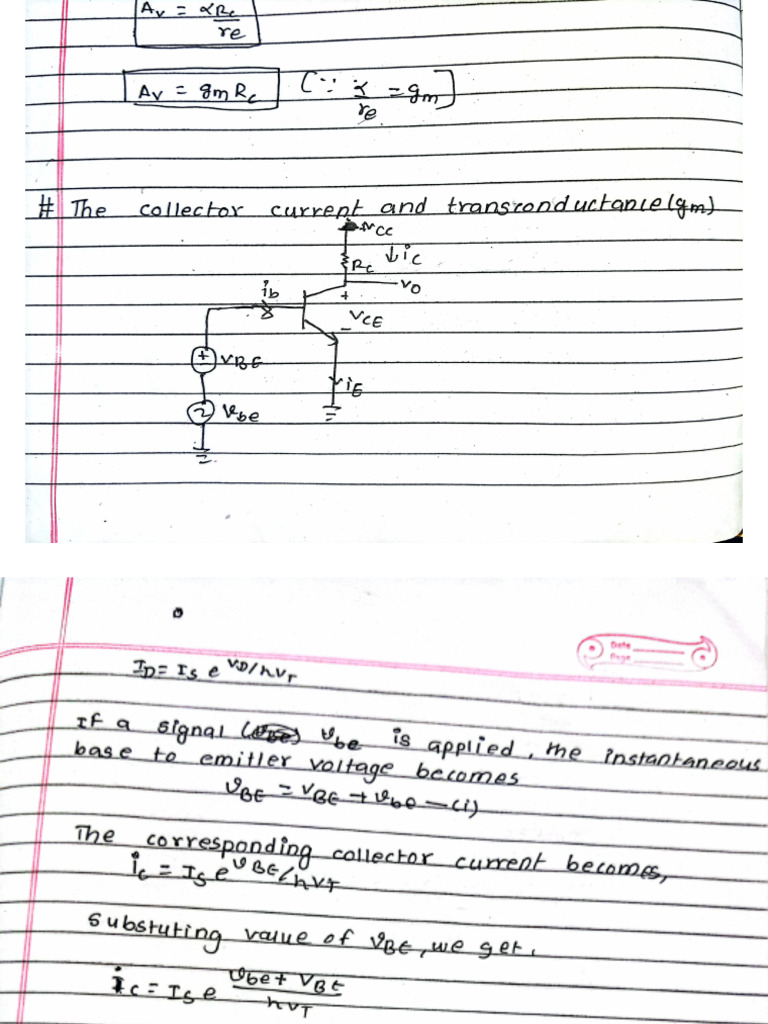 Av = αRc
re
Av = gm Rc (∵ α/re = gm)
# The collector current and transconductance (gm)
Vcc
Rc ↓ic
Vo
ib
+
VCE
-
+ VBE
iE
Vbe
Date
Page
ID = Is e VD/hVT
If a signal Vbe is applied, the instantaneous
base to emitter voltage becomes
VBE = VBE + Vbe - (i)
The corresponding collector current becomes,
ic = Is e VBE/hVT
substuting value of VBE, we get,
ic = Is e Vbe + VBE
hVT